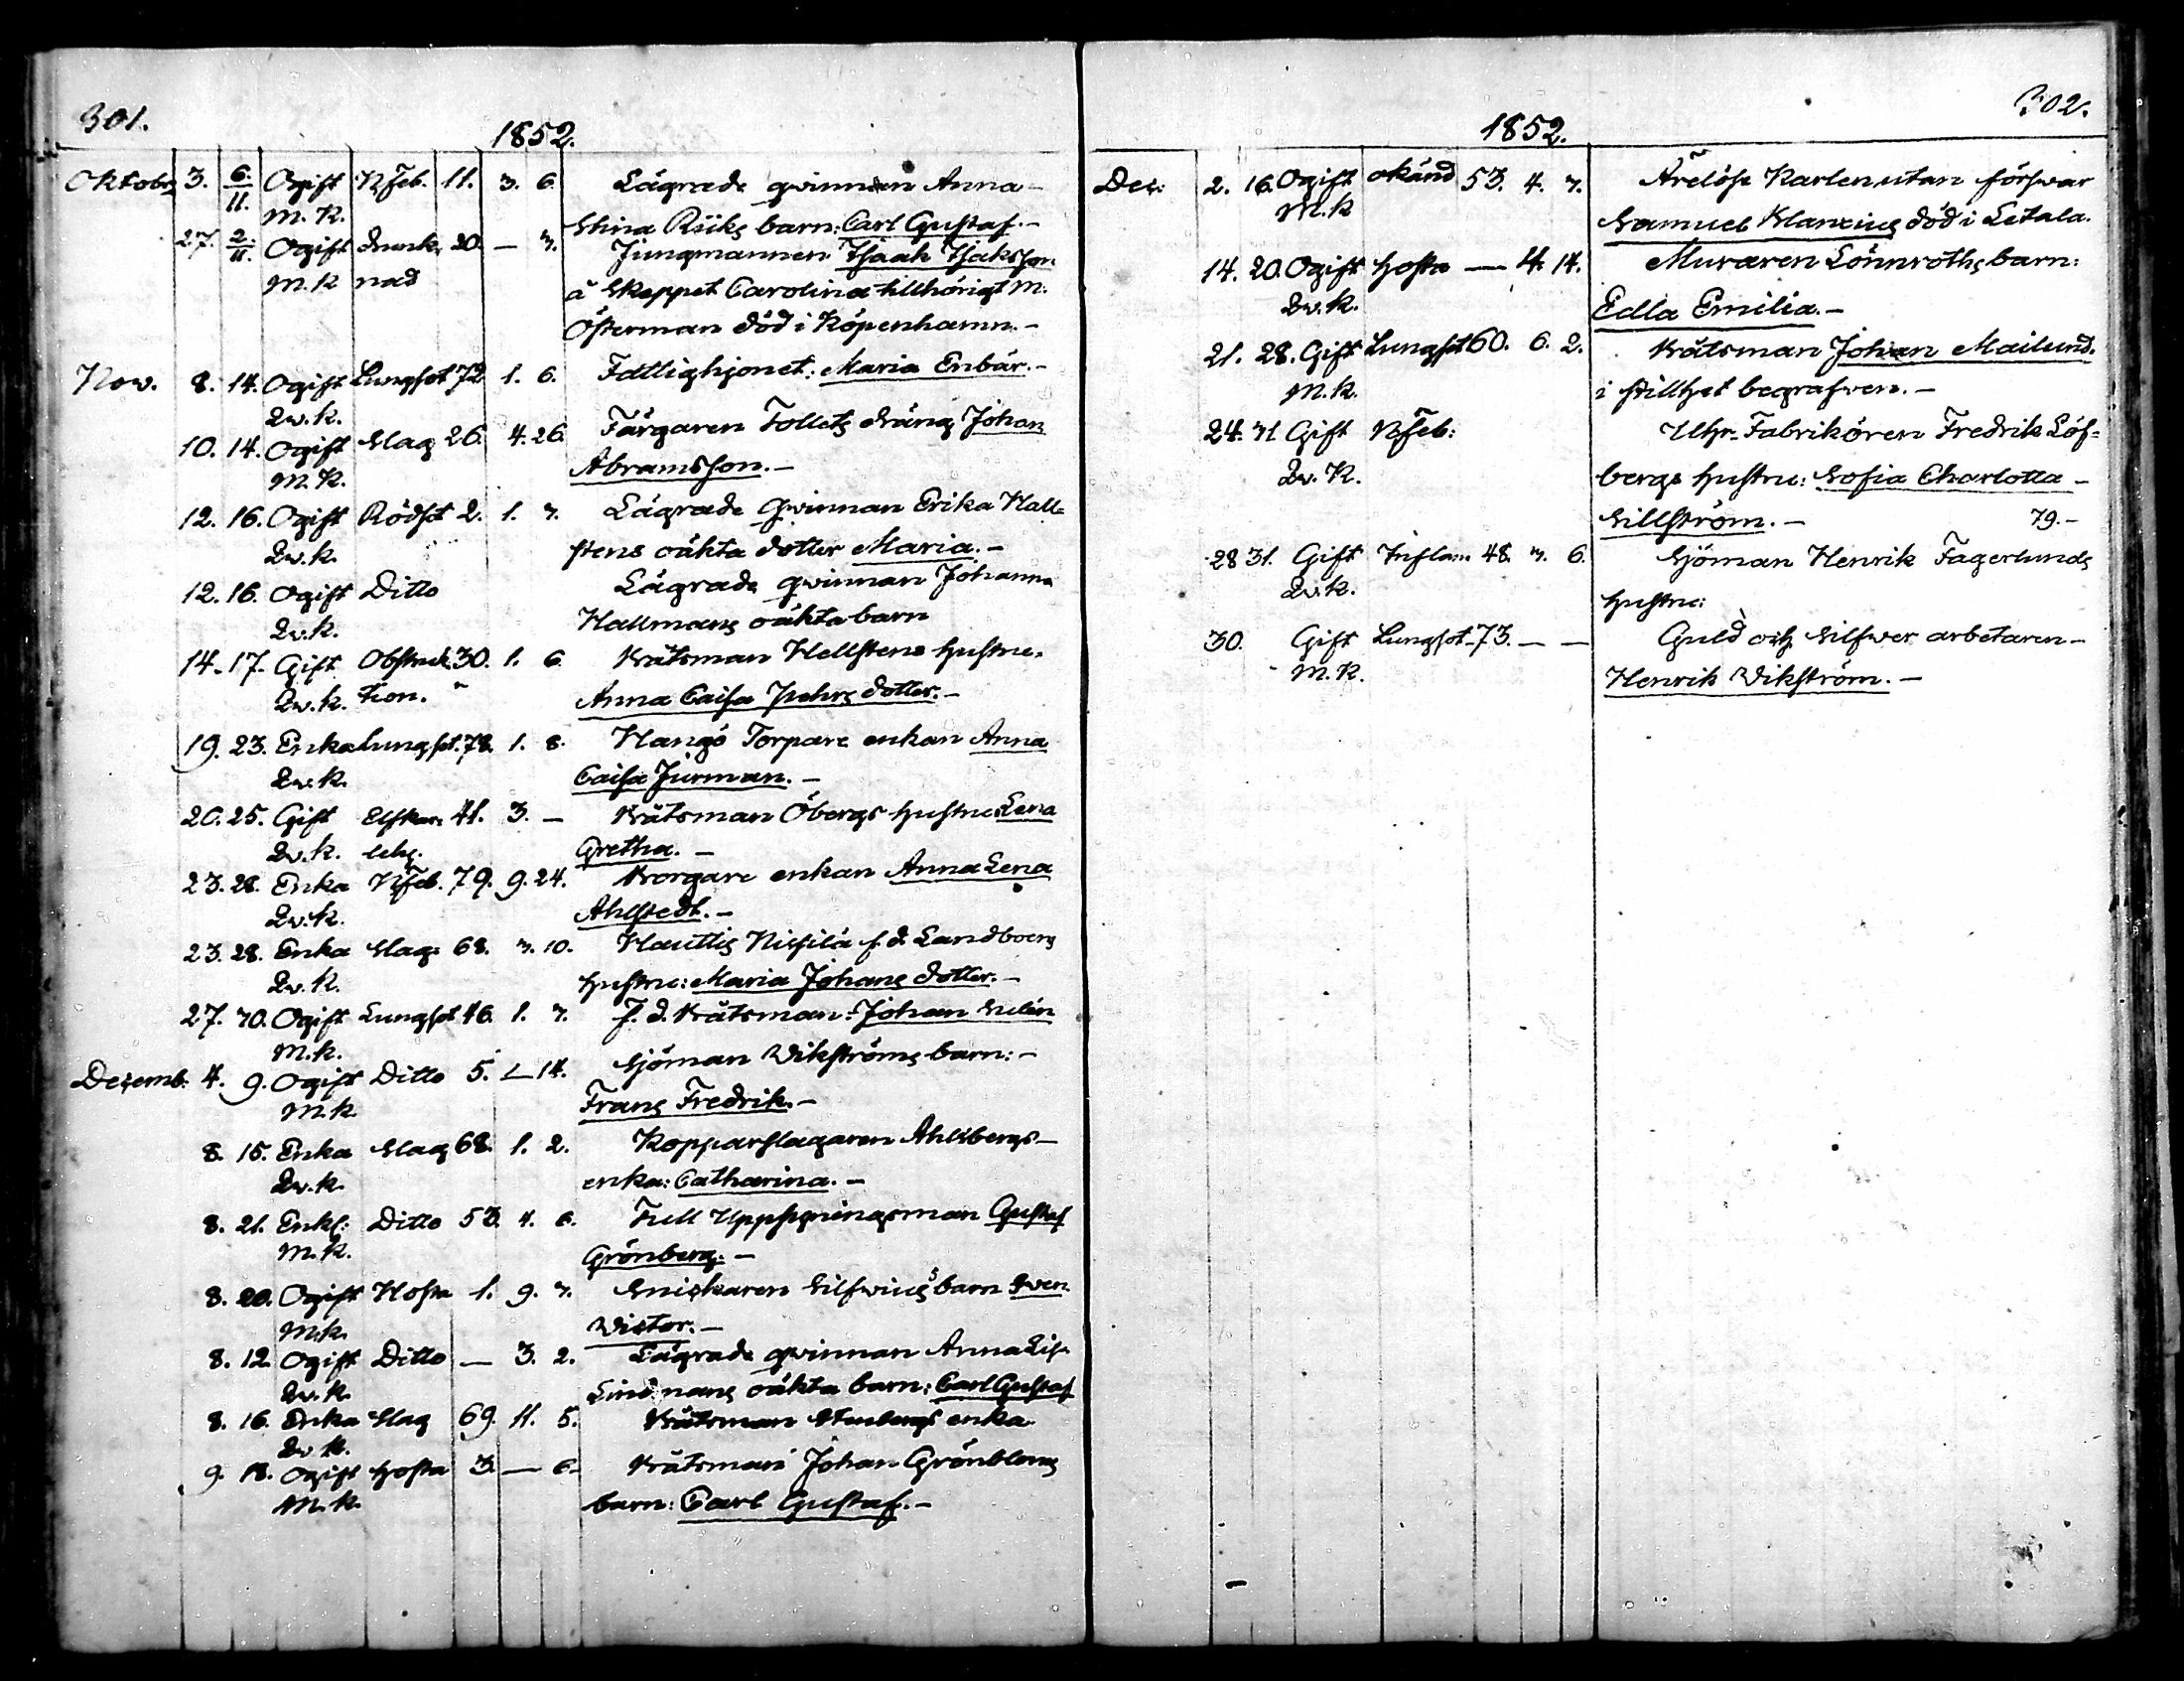 301.
1852.
Oktobr 3. 6./11. Ogift Nfeb. 11. 3. 6. Lägrade qwinnan Anna-
M. K. Stina Riiks barn: Carl Gustaf.-
27. 2./11. Ogift drunk- 20. — 3. Jungmannen Isaak Isaksson
M. K nad å Skeppet Carolina tillhörigt M.
Österman död i Köpenhamn.-
Nov. 8. 14. Ogift Lungsot 72 1. 6. Fattighjonet: Maria Enbär.-
Qw. k.
10. 14. Ogift Slag 26. 4. 26. Färgaren Tollets dräng Johan
M. K. Abramsson.-
12. 16. Ogift Rödsot 2. 1. 3. Lägrade Qwinnan Erika Hall-
Qw. k. stens oäkta dotter Maria.-
12. 16. Ogift Ditto Lägrade qwinnan Johanna
Qw. k. Hallmans oäkta barn
14. 17. Gift Obstruk- 30. 1. 6. Båtsman Hellstens hustru.
Qw. k. tion. Anna Caisa Pehrs dotter.-
19. 23. Enka Lungsot. 78. 1. 8. Hangö Torpare enkan Anna
Qw. k. Caisa Jurman.-
20. 25. Gift 41. 3. — Båtsman Öbergs hustru Lena
Qw. k. Gretha.-
23. 28. Enka Nfeb. 79. 9. 24. Borgare enkan Anna Lena
Qw. k. Ahlstedt.-
23. 28. Enka Slag 68. 3. 10. Hautis Nissilä f. d. Landboens
Qw. K. hustru: Maria Johans dotter.-
27. 30. Ogift Lungsot 46. 1. 3. f. d. Båtsman Johan Sulin
M. k.
Dezemb. 4. 9. Ogift Ditto 5. — 14. Sjöman Wikströms barn:-
M. k. Frans Fredrik.-
8. 15. Enka Slag 68. 1. 2. Kopparslagaren Ahlsbergs-
Qw. k. enka: Catharina.-
8. 21. Enkl: Ditto 53. 4. 6. Tull Uppsyningsman Gustaf
M. K. Grönberg.-
8. 20. Ogift Hosta 1. 9. 3. Snickaren Silfwius's barn Swen
M. k. Wictor.-
8. 12. Ogift Ditto — 3. 2. Lägrade qwinnan Anna Lisa
Qw. k. Lindmans oäkta barn: Carl Gustaf
8. 16. Enka Slag 69. 11. 5. Båtsman Stenbergs enka
Qw. k.
9. 18. Ogift Hosta 3. — 6. Båtsman Johan Grönbloms
M. k. barn: Carl Gustaf.-
302.
1852.
Dez: 2. 16. Ogift okänd 53. 4. 3. Ärelöse Karlen utan förswar
M. k Samuel Klanzius död i Letala.
14. 20. Ogift Hosta — 4. 14. Muraren Lönnroths barn:
Qw. k. Edla Emilia.-
21. 28. Gift Lungsot 60. 6. 2. Båtsman Johan Mailund.
M. k. i stillhet begrafwen.-
24. 31 Gift Nfeb: Uhr-Fabrikören Fredrik Löf-
Qw. K. bergs hustru: Sofia Charlotta
Sillström.- 79.-
28 31. Gift Inflam: 48. 3. 6. Sjöman Henrik Fagerlunds
Qw. k. hustru:
30. Gift Lungsot 73. — — Guld och Silfwer arbetaren-
M. K. Henrik Wikström.-